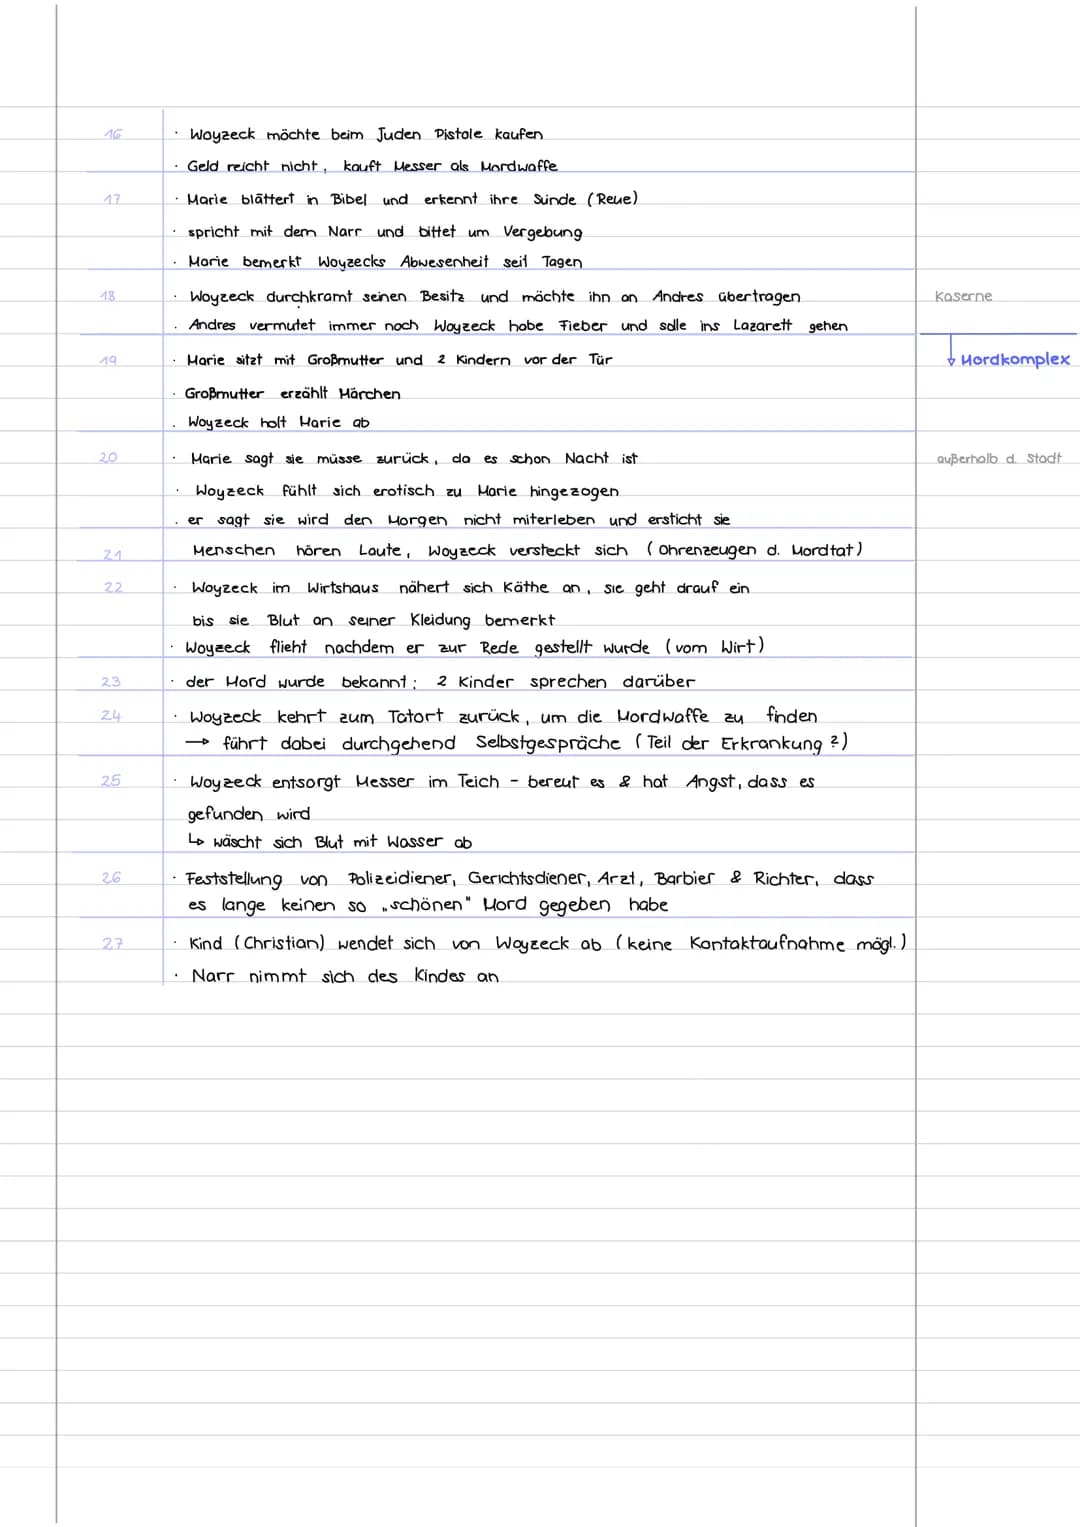 16
· Woyzeck möchte beim Juden Pistole kaufen
· Geld reicht nicht, kauft Messer als Mordwaffe
17
· Marie blättert in Bibel und erkennt ihre Sünde (Reue)
· spricht mit dem Narr und bittet um Vergebung
· Marie bemerkt Woyzecks Abwesenheit seit Tagen
18
· Woyzeck durchkramt seinen Besitz und möchte ihn an Andres übertragen
Kaserne
· Andres vermutet immer noch Woyzeck habe Fieber und solle ins Lazarett gehen
19
· Marie sitzt mit Großmutter und 2 Kindern vor der Tür
↓ Mordkomplex
· Großmutter erzählt Märchen
· Woyzeck holt Marie ab
20
· Marie sagt sie müsse zurück, da es schon Nacht ist
außerhalb d. Stadt
· Woyzeck fühlt sich erotisch zu Marie hingezogen
· er sagt sie wird den Morgen nicht miterleben und ersticht sie
21
Menschen hören Laute, Woyzeck versteckt sich (Ohrenzeugen d. Mordtat)
22
· Woyzeck im Wirtshaus nähert sich Käthe an, sie geht drauf ein
bis sie Blut an seiner Kleidung bemerkt
· Woyzeck flieht nachdem er zur Rede gestellt wurde (vom Wirt)
23
· der Mord wurde bekannt; 2 Kinder sprechen darüber
24
· Woyzeck kehrt zum Tatort zurück, um die Mordwaffe zu finden
→ führt dabei durchgehend Selbstgespräche (Teil der Erkrankung?)
25
· Woyzeck entsorgt Messer im Teich - bereut es & hat Angst, dass es
gefunden wird
↳ wäscht sich Blut mit Wasser ab
26
· Feststellung von Polizeidiener, Gerichtsdiener, Arzt, Barbier & Richter, dass
es lange keinen so „schönen" Mord gegeben habe
27
· Kind (Christian) wendet sich von Woyzeck ab (keine Kontaktaufnahme mögl.)
· Narr nimmt sich des Kindes an